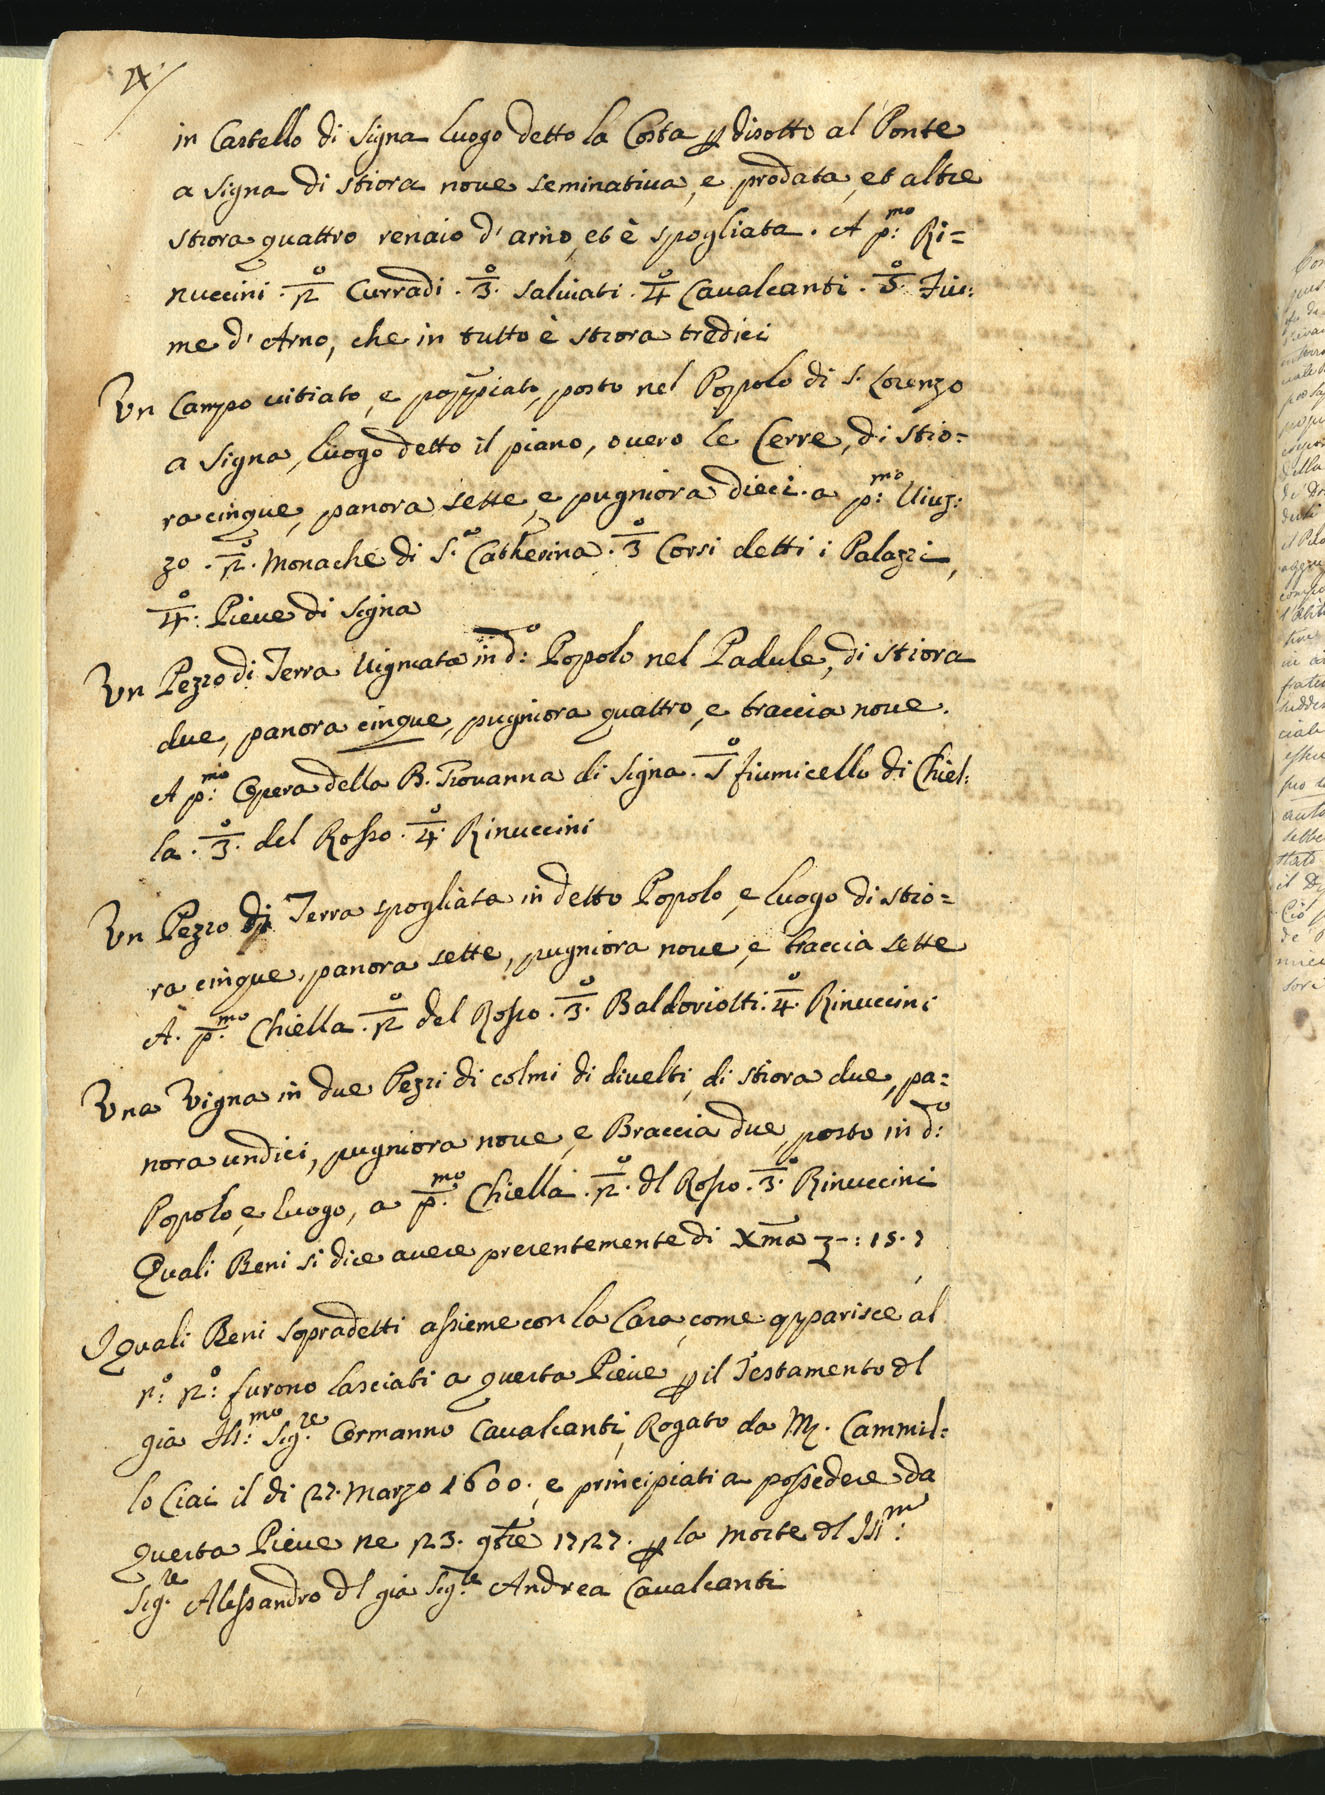 4
in Castello di Signa luogo detto la Costa p disotto al Ponte
a Signa di stiora noue seminatiua, e prodata, et altre
stiora quattro renaio d'arno, et è spogliata. A p:mo Ri=
nuccini. 2o Curradi. 3o. Saluiati. 4o Caualcanti. 5o. Fiu:
me d'Arno, che in tutto è stiora tredici
Un Campo uitiato, e pioppiato, posto nel Popolo di S. Lorenzo
a Signa, luogo detto il piano, ouero le Cerre, di stio=
ra cinque, panora sette, e pugniora dieci. a p:mo Uiuz:
zo. 2o. Monache di S.a Catherina. 3o Corsi detti i Palazzi,
4o: Pieue di Signa
Un Pezzo di Terra Uigniata in d:o Popolo nel Padule, di stiora
due, panora cinque, pugniora quattro, e braccia noue.
A p:mo Opera della B. Giouanna di Signa. 2o fiumicello di Chiel:
la. 3o. del Rosso. 4o. Rinuccini
Un Pezzo di Terra spogliata in detto Popolo, e luogo di stio=
ra cinque, panora sette, pugniora noue, e braccia sette
A. p:mo Chiella. 2o del Rosso. 3o. Baldouiotti. 4o. Rinuccini
Una Vigna in due Pezzi di colmi di diuelti, di stiora due, pa=
nora undici, pugniora noue, e Braccia due, posto in d:o
Popolo, e luogo, a p:mo Chiella. 2o. dl Rosso. 3o. Rinuccini
Quali Beni si dice auere presentemente di Xma
I quali Beni sopradetti assieme con la Casa, come apparisce al
n.o 2o: furono lasciati a questa Pieue p il Testamento dl
già Ill:mo Sig:re Cormanno Caualcanti, Rogato da M. Cammil=
lo Ciai il di 27. Marzo 1600. e principiati a possedere da
questa Pieue ne 23. 9bre 1727. p la morte dl Ill:mo
Sig.re Alessandro dl già Sig.re Andrea Caualcanti